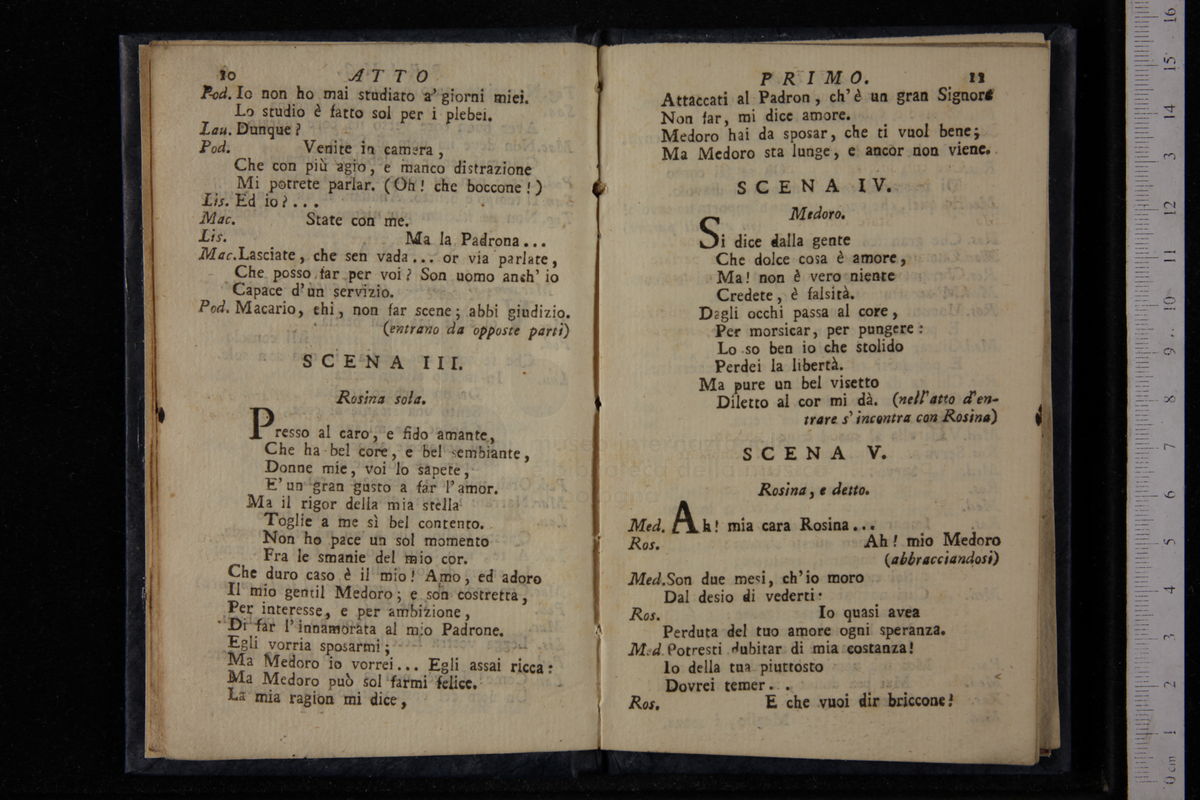 10 ATTO
Pod. Io non ho mai studiato a' giorni miei.
Lo studio è fatto sol per i plebei.
Lau. Dunque?
Pod. Venite in camera,
Che con più agio, e manco distrazione
Mi potrete parlar. (Oh! che boccone!)
Lis. Ed io?...
Mac. State con me.
Lis. Ma la Padrona...
Mac. Lasciate, che sen vada... or via parlate,
Che posso far per voi? Son uomo anch' io
Capace d'un servizio.
Pod. Macario, ehi, non far scene; abbi giudizio.
(entrano da opposte parti)
SCENA III.
Rosina sola.
Presso al caro, e fido amante,
Che ha bel core, e bel sembiante,
Donne mie, voi lo sapete,
E' un gran gusto a far l'amor.
Ma il rigor della mia stella
Toglie a me sì bel contento.
Non ho pace un sol momento
Fra le smanie del mio cor.
Che duro caso è il mio! Amo, ed adoro
Il mio gentil Medoro; e son costretta,
Per interesse, e per ambizione,
Di far l'innamorata al mio Padrone.
Egli vorria sposarmi;
Ma Medoro io vorrei... Egli assai ricca:
Ma Medoro può sol farmi felice.
La mia ragion mi dice,
PRIMO. 11
Attaccati al Padron, ch'è un gran Signore
Non far, mi dice amore.
Medoro hai da sposar, che ti vuol bene;
Ma Medoro sta lunge, e ancor non viene.
SCENA IV.
Medoro.
Si dice dalla gente
Che dolce cosa è amore,
Ma! non è vero niente
Credete, è falsità.
Dagli occhi passa al core,
Per morsicar, per pungere:
Lo so ben io che stolido
Perdei la libertà.
Ma pure un bel visetto
Diletto al cor mi dà. (nell'atto d'en-
trare s'incontra con Rosina)
SCENA V.
Rosina, e detto.
Med. Ah! mia cara Rosina...
Ros. Ah! mio Medoro
(abbracciandosi)
Med. Son due mesi, ch'io moro
Dal desio di vederti.
Ros. Io quasi avea
Perduta del tuo amore ogni speranza.
Med. Potresti dubitar di mia costanza!
Io della tua piuttosto
Dovrei temer...
Ros. E che vuoi dir briccone?